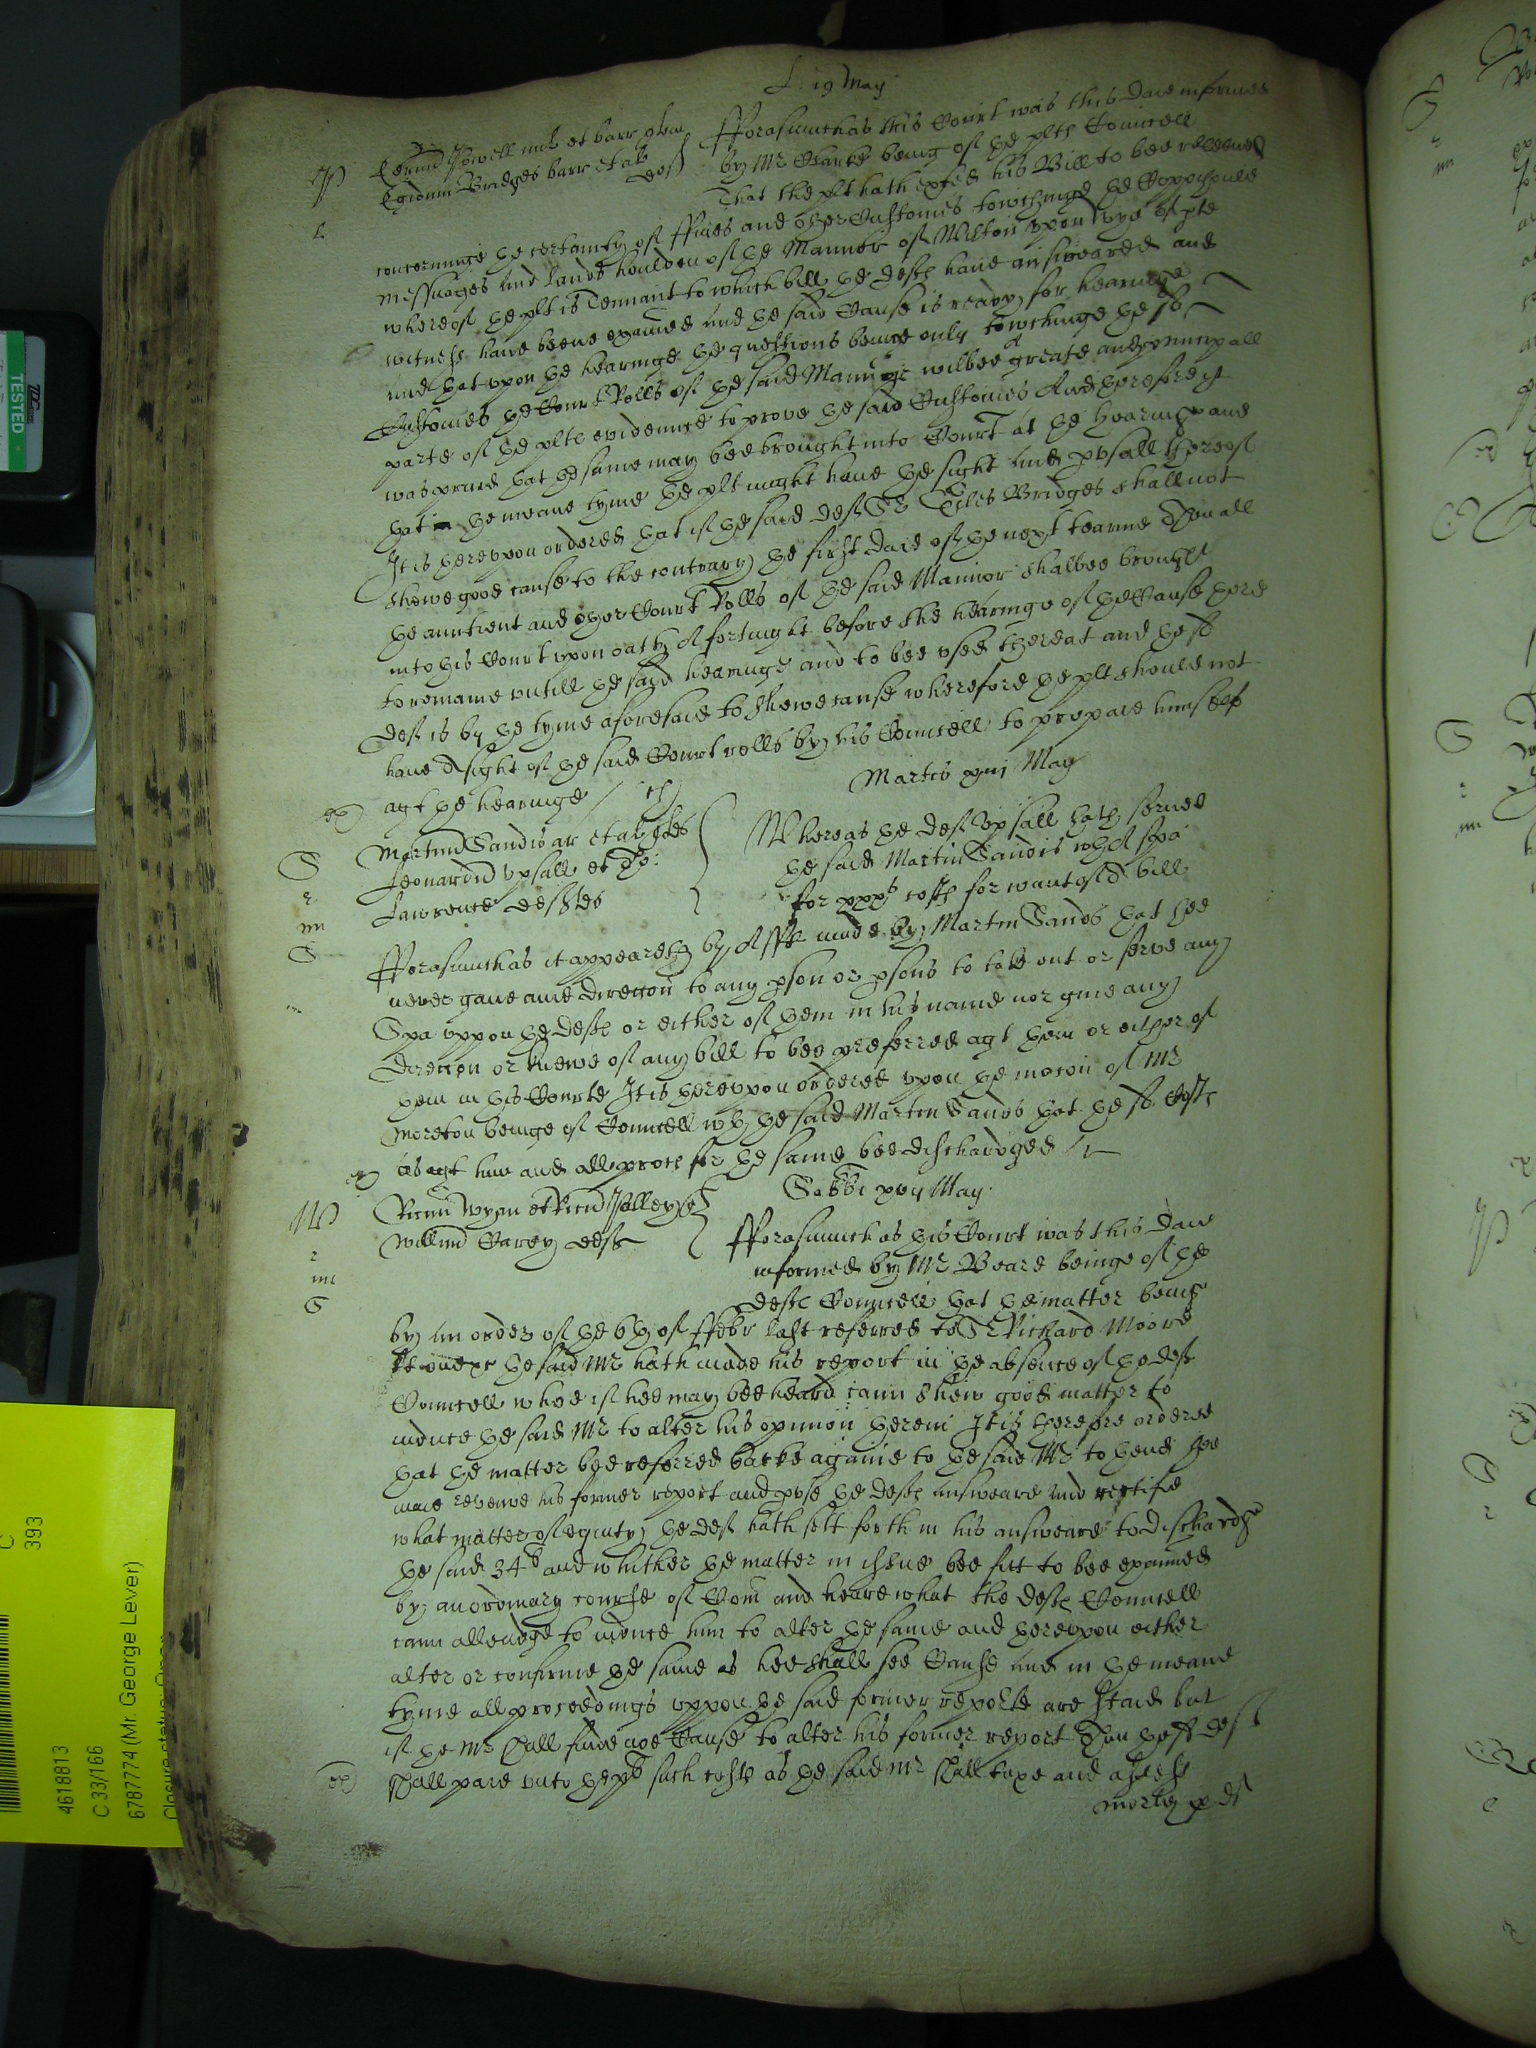 L: 19 May
Powell mil et barr
Egidium Bridges barr et al def
Fforasmuch as this Court was this daie informed
by Mr Clarke being of þe plts Councell
That the plt hath his Bill to bee releeved
concerninge þe certainty of ffines and oþer Customes towchinge þe Coppihould
messuages and lands houlden of þe Mannor of Wilton vpon Wye of
whereof þe plt is Tennant to which bill þe defts have answeared and
witness have beene examined and þe said Cause is ready for hearinge
and þat vpon þe hearinge þe questions beinge only towchinge þe sd
Customes þe Court Rolls of þe said Mannor wilbee a greate and principall
parte of þe plts evidence to prove þe said Customes And þerefore it
was praied þat þe same may bee brought into Court at þe hearinge and
þat in þe meane tyme þe plt might have þe sight and pvsall þereof
It is þerevpon ordered þat if þe said deft Sr Giles Bridges shall not
shewe good cause to the contrary þe first daie of þe next tearme Then all
þe auntient and oþer Court Rolls of þe said Mannor shalbee brought
into þis Court vpon oath A fortnight before the hearinge of þe Cause þere
to remaine vntill þe said hearinge and to bee vsed thereat and þe sd
deft is by þe tyme aforesaid to shewe cause wherefore þe plt should not
have A sight of þe said Court rolls by his Councell to prepare himself
agt þe hearinge
Martis May
Martinu Sandis ar et al
Leonardu vpsall et
Lawrence deftes
Whereas þe deft Vpsall hath served
þe said Martin Sandis wth A spa
for xxxs costs for want of A bill
Fforasmuch as it appeareth by Afft made by Martin Sands þat hee
never gave anie direccon to any pson or psons to take out or serve any
Spa vppon þe defts or either of þem in his name nor give any
direccon or knewe of any bill to bee preferred agt þem or either of
þem in þis Courte It is þerevpon ordered vpon þe mocon of Mr
Moreton beinge of Councell wth þe said Martin Sands þat þe sd Costs
as agt him and all proces for þe same bee dischardged
Sabbi May
Ricum Wynn et Ricu
Willmu Carey deft
Fforasmuch as þis Court was this daie
informed by Mr Weare beinge of þe
defts Councell þat þe matter beinge
by an order of þe of Ffebr last referred to Sr Richard Moore
þe said Mr hath made his report in þe absence of þe defts
Councell whoe if hee may bee heard cann shew good matter to
induce þe said Mr to alter his opinion þerein It is therefore ordered
þat þe matter bee referred backe againe to þe said Mr to þend hee
maie reveiwe his former report and pvse þe defts answeare and certifie
what matter of equity þe deft hath sett forth in his answeare to dischardge
þe said 34l and whither þe matter in issue bee fitt to bee examined
by an ordinary course of Com and heare what the defts Councell
cann alleadge to induce him to alter þe same and þerevpon either
alter or confirme þe same as hee shall see Cause and in þe meane
tyme all proceedings vppon þe said former reporte are staid but
if þe Mr shall finde noe Cause to alter his former report Then þe sd deft
shall paie vnto þe plt such costs as þe said Mr shall taxe and assesse
TESTED
C
393
4618813
C 33/166
6787774 (Mr. George Lever)
Closure status: Open